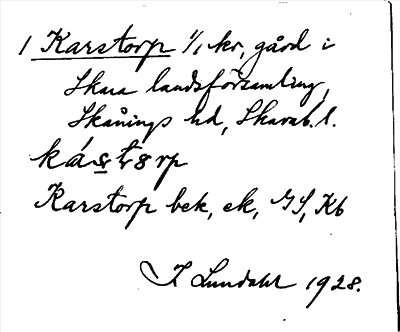 1 Karstorp 1/1 kr, gård i
Skara landsförsamling,
Skånings hd, Skarab. l.
Karstorp bek, ek, GS, Kb
I Lundahl 1928.